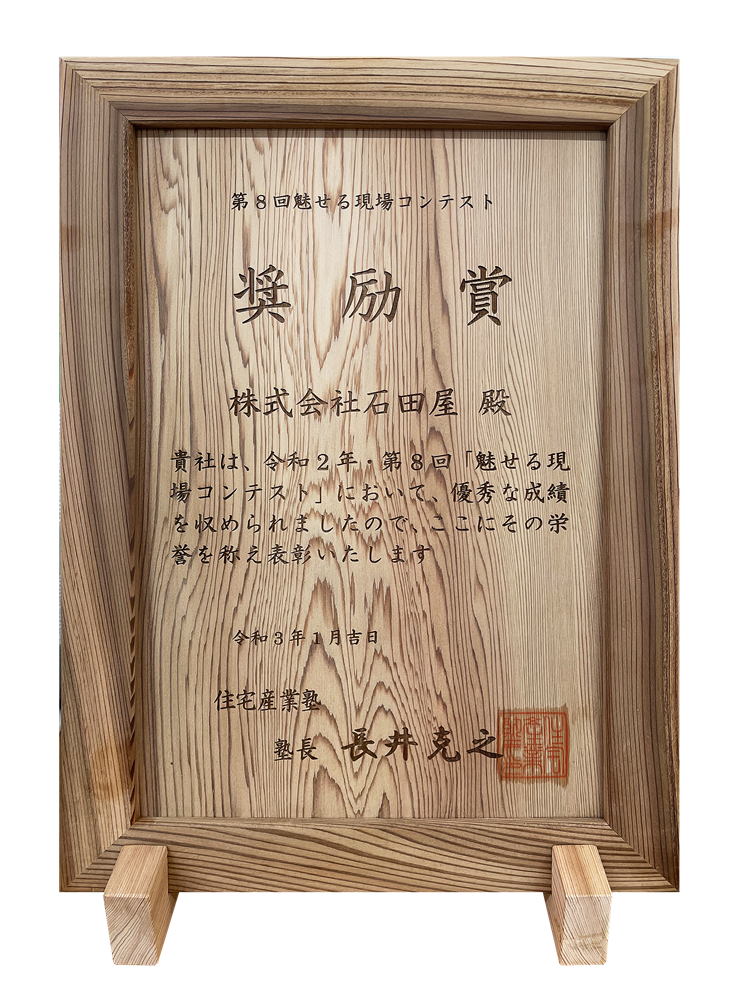 第8回魅せる現場コンテスト
奨励賞
株式会社石田屋 殿
貴社は、令和2年・第8回「魅せる現
場コンテスト」において、優秀な成績
を収められましたので、ここにその栄
誉を称え表彰いたします
令和3年1月吉日
住宅産業塾
塾長 長井克之